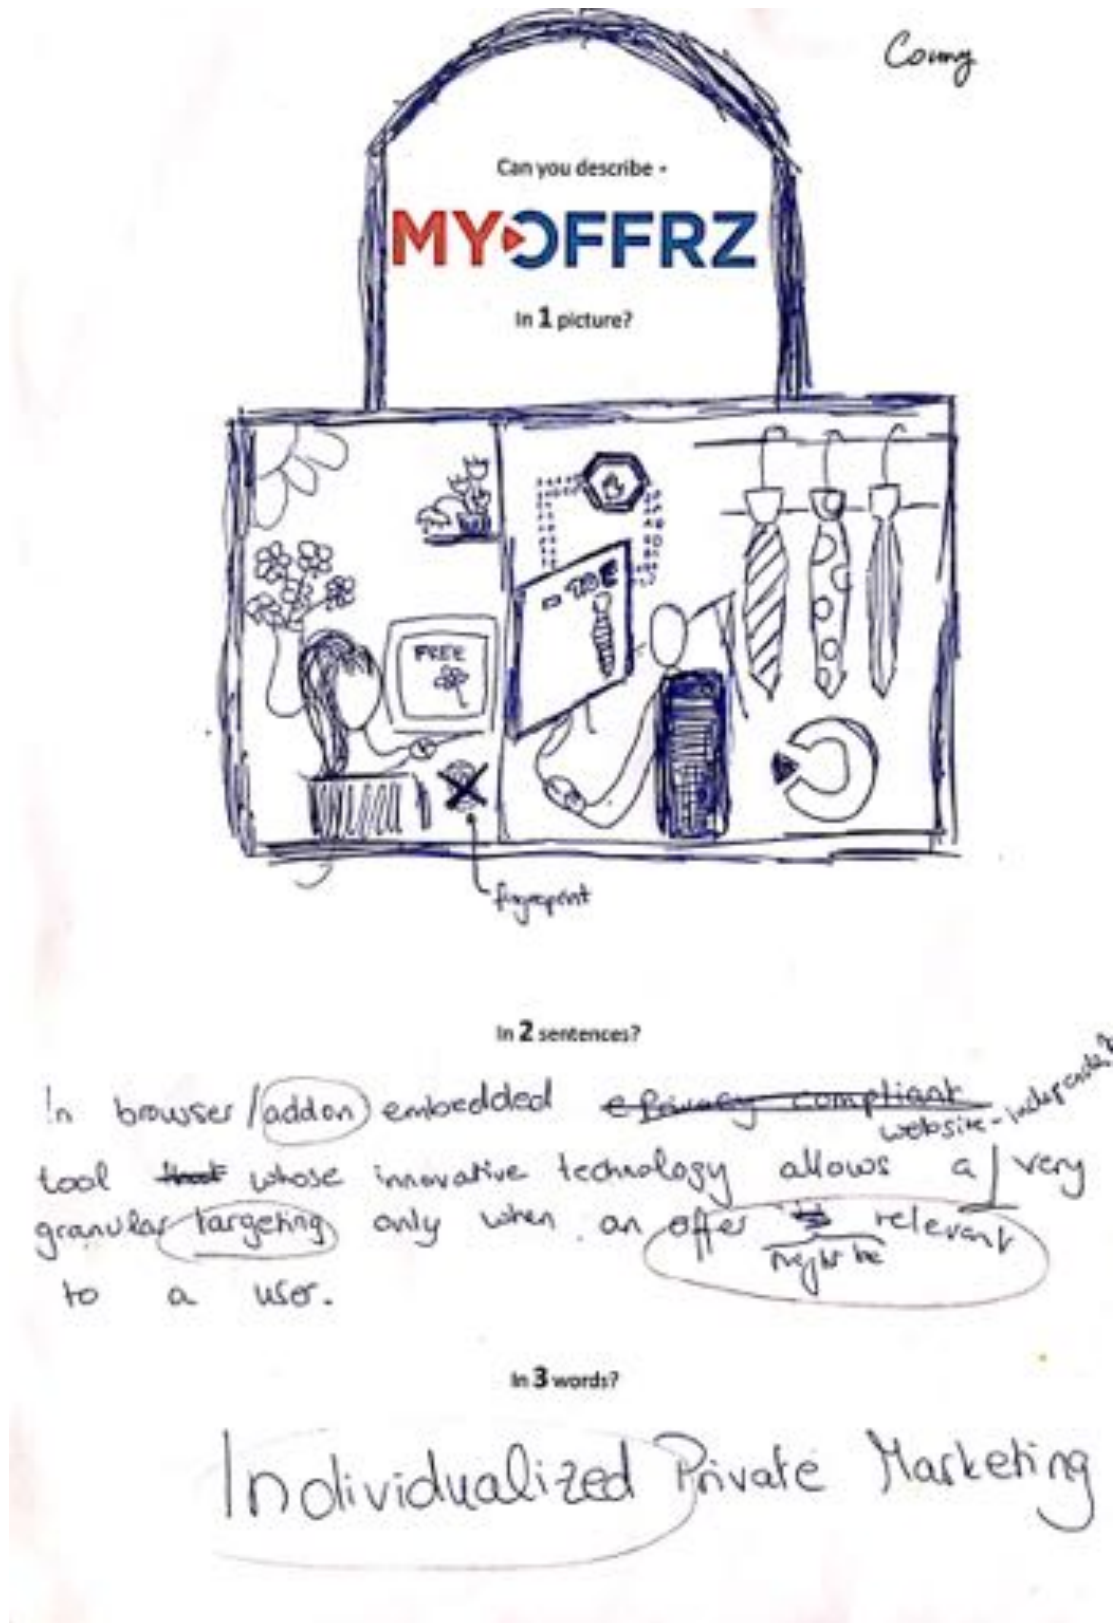 Conny
Can you describe -
MYOFFRZ
In 1 picture?
FREE
fingerprint
In 2 sentences?
In browser/addon embedded ePrivacy compliant
website-independent
tool that whose innovative technology allows a very
granular targeting only when an offer relevant
might be
to a user.
In 3 words?
Individualized Private Marketing